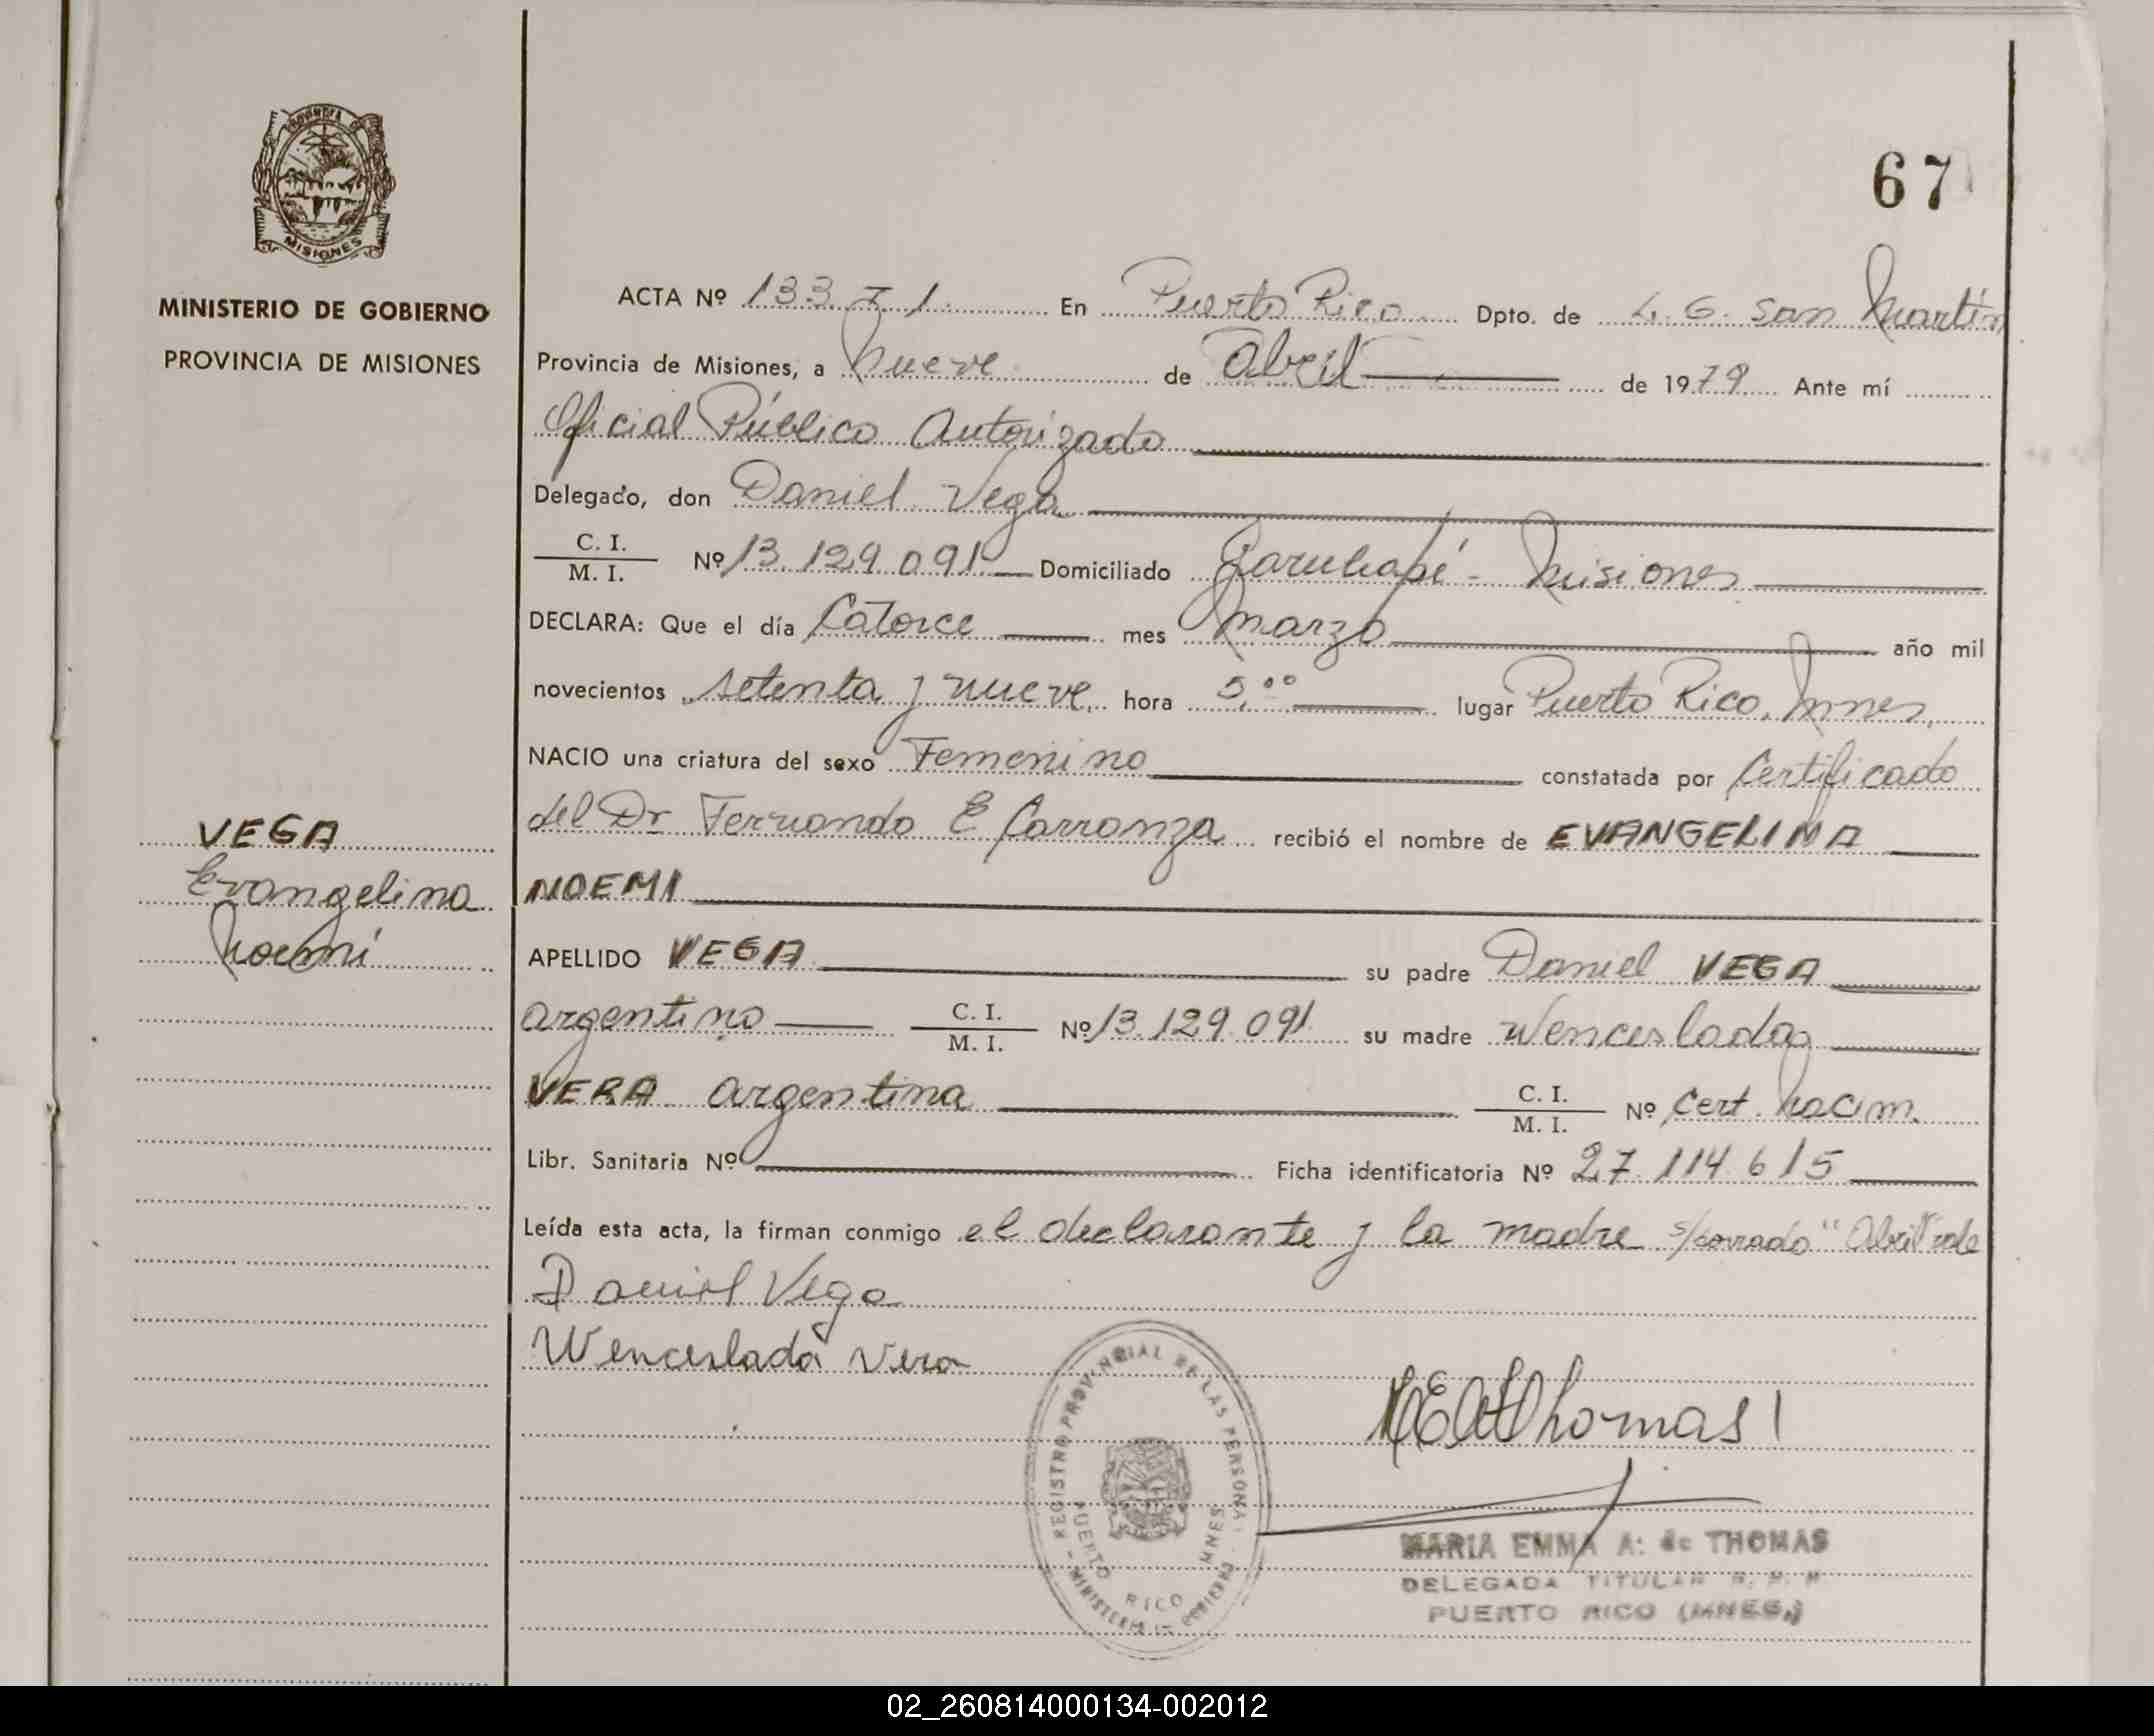 67
PROVINCIA DE
MISIONES
MINISTERIO DE GOBIERNO
PROVINCIA DE MISIONES
VEGA
Evangelina
Noemí
ACTA Nº 133 T 1 En Puerto Rico Dpto. de L. G. San Martín
Provincia de Misiones, a nueve de Abril de 1979 Ante mí
Oficial Público Autorizado
Delegado, don Daniel Vega
C. I.
M. I. Nº 13.129.091 Domiciliado Garuhapé - Misiones
DECLARA: Que el día Catorce mes Marzo año mil
novecientos setenta y nueve hora 5,00 lugar Puerto Rico, Mnes,
NACIO una criatura del sexo Femenino constatada por Certificado
del Dr Fernando E Carranza recibió el nombre de EVANGELINA
NOEMI
APELLIDO VEGA su padre Daniel VEGA
argentino C. I.
M. I. Nº 13.129.091 su madre Wenceslada
VERA argentina C. I.
M. I. Nº Cert. Nacim.
Libr. Sanitaria Nº Ficha identificatoria Nº 27.114.615
Leída esta acta, la firman conmigo el declarante y la madre s/borrado "Abril" vale
Daniel Vega
Wenceslada Vera
REGISTRO PROVINCIAL DE LAS PERSONAS
MINISTERIO DE GOBIERNO
PUERTO RICO MNES
MEAThomas
MARIA EMMA A: de THOMAS
DELEGADA TITULAR R. P. P.
PUERTO RICO (MNES.)
02_260814000134-002012